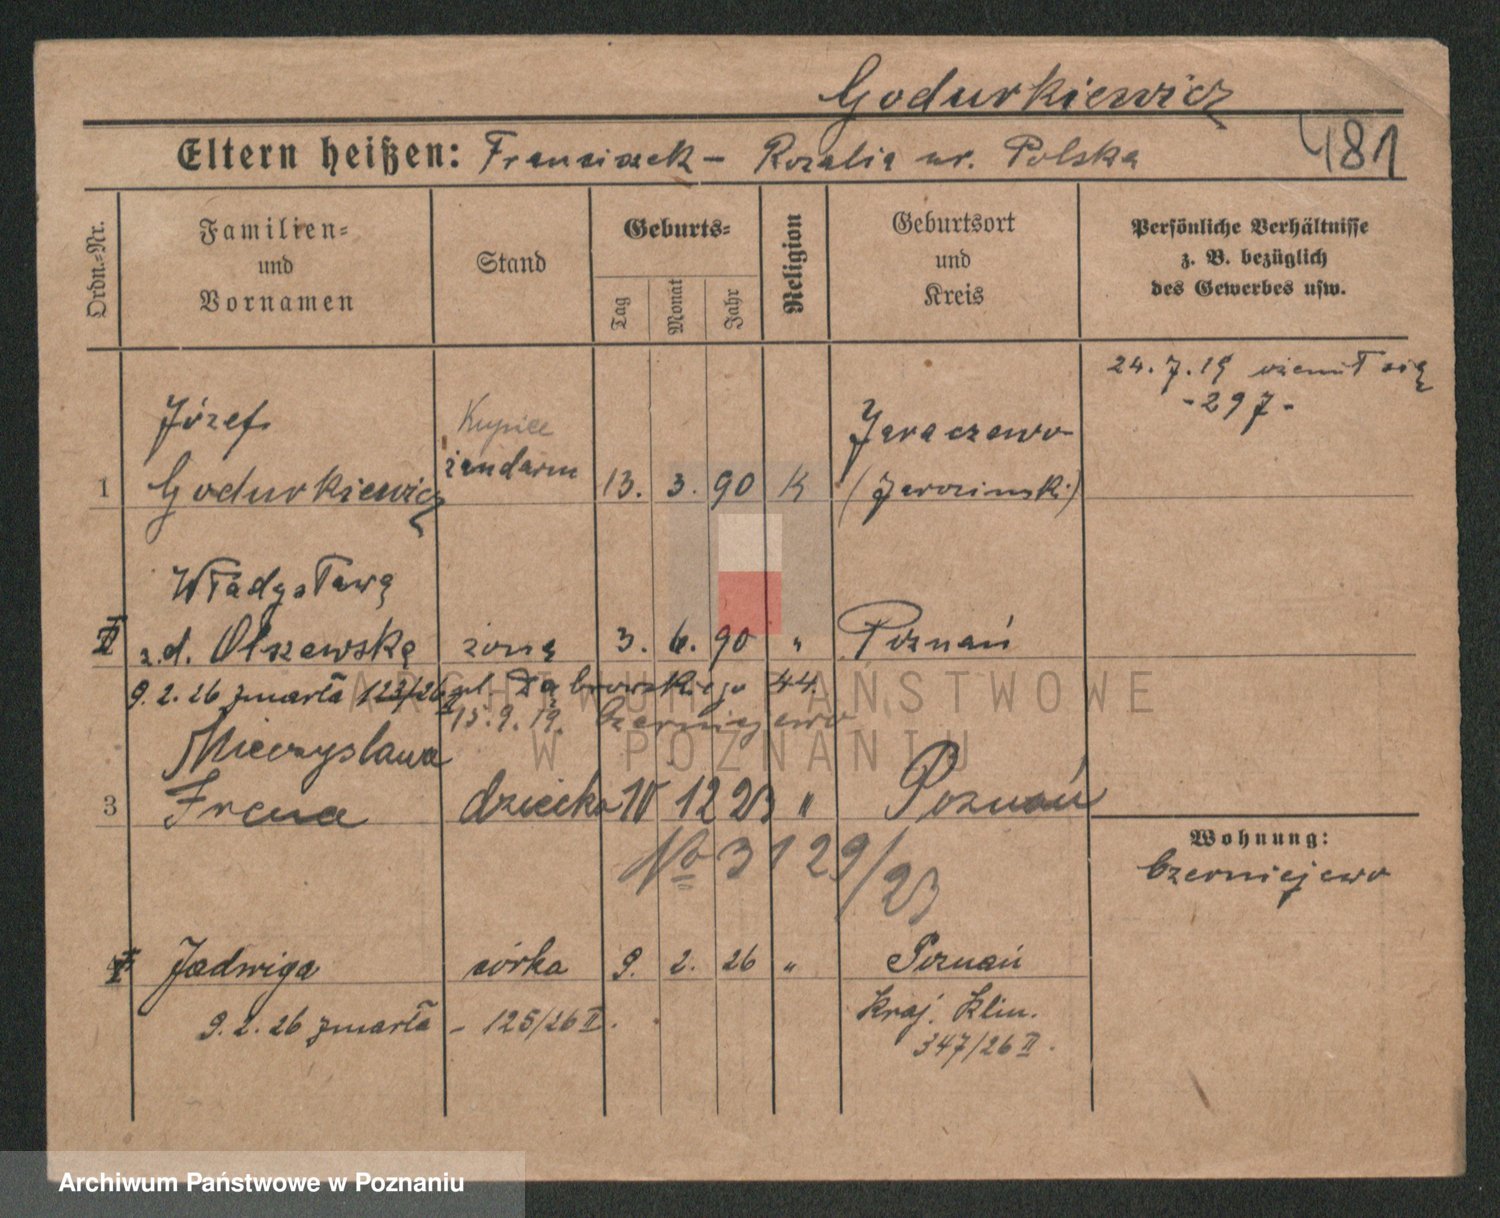 Godurkiewicz
Eltern heißen: Franciszek – Rozalia ur. Polska
481
Ordn.-Nr.
Familien-
und
Vornamen
Stand
Geburts-
Tag
Monat
Jahr
Religion
Geburtsort
und
Kreis
Persönliche Verhältnisse
z. B. bezüglich
des Gewerbes usw.
24.7.19 ożenił się
-297-
Józef
Kupiec
Jaraczewo
żandarm
1 Godurkiewicz 13. 3. 90 K (Jarocinski)
Władysława
II z.d. Olszewska żona 3. 6. 90 " Poznań
9.2.26 zmarła 123/26 II ul. Dąbrowskiego 44.
15.9.19. Czerniejewo
Mieczysława
3 Irena dziecko 10 12 23 " Poznań
No 3129/23
Wohnung:
Czerniejewo
Jadwiga córka 9. 2. 26 " Poznań
9.2.26 zmarła – 125/26 II.
Kraj. Klin.
347/26 II.
ARCHIWUM PAŃSTWOWE
W POZNANIU
Archiwum Państwowe w Poznaniu